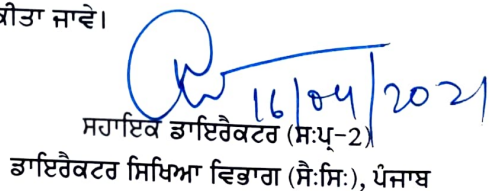 ਕੀਤਾ ਜਾਵੇ।
16/04/2021
ਸਹਾਇਕ ਡਾਇਰੈਕਟਰ (ਸ:ਪ੍ਰ-2)
ਡਾਇਰੈਕਟਰ ਸਿਖਿਆ ਵਿਭਾਗ (ਸੈ:ਸਿ:), ਪੰਜਾਬ